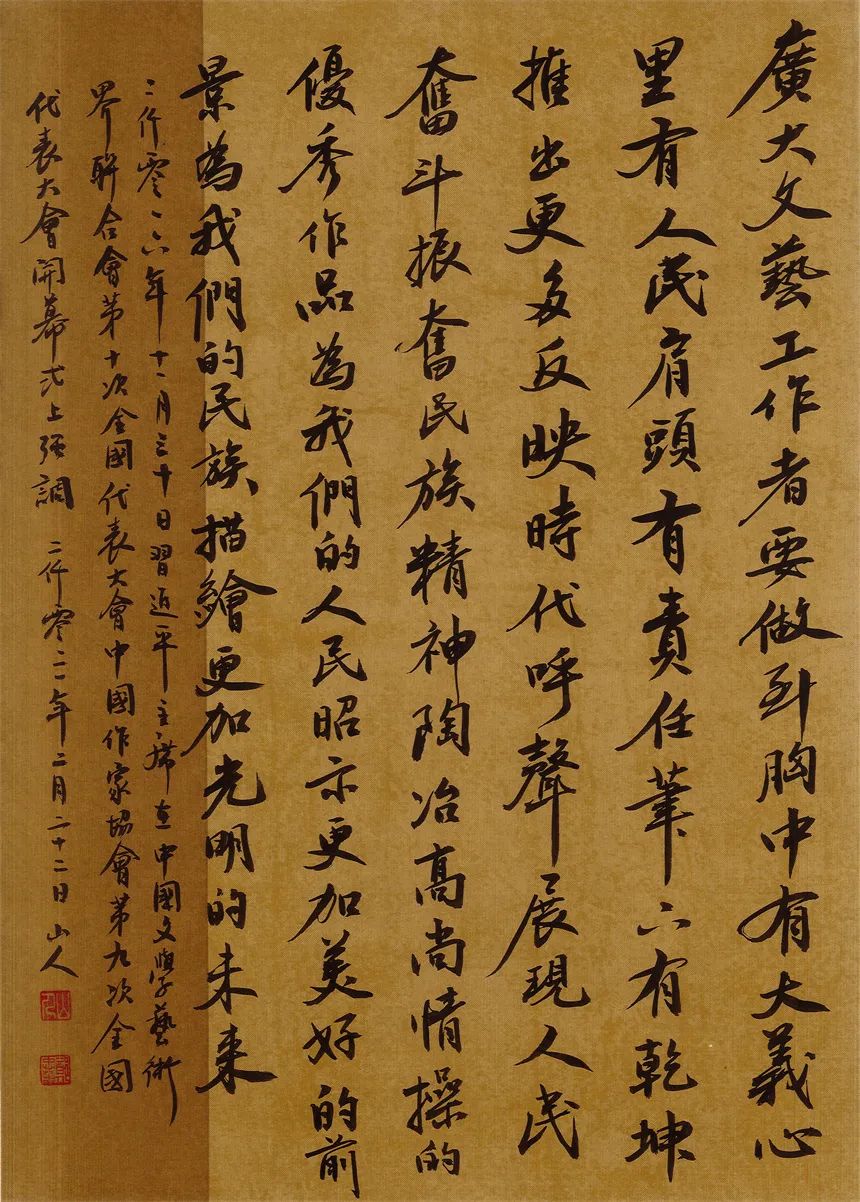 廣大文藝工作者要做到胸中有大義心
里有人民肩頭有責任筆下有乾坤
推出更多反映時代呼聲展現人民
奮斗振奮民族精神陶冶高尚情操的
優秀作品為我們的人民昭示更加美好的前
景為我們的民族描繪更加光明的未來
二仟零一六年十一月三十日習近平主席在中國文學藝術
界聯合會第十次全國代表大會中國作家協會第九次全國
代表大會開幕式上强調 二仟零二一年二月二十二日 山人